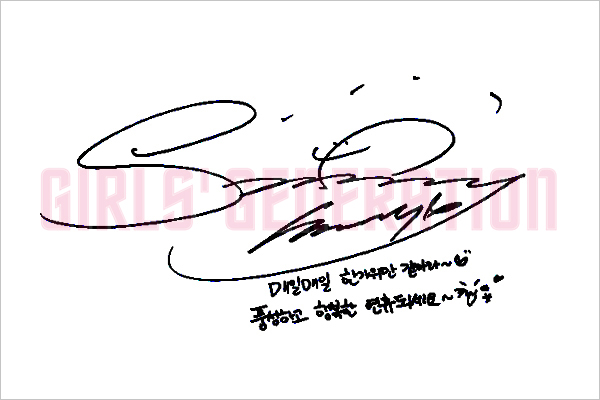 GIRLS' GENERATION
매일매일 한가위만 같아라~
풍성하고 행복한 연휴되세요~